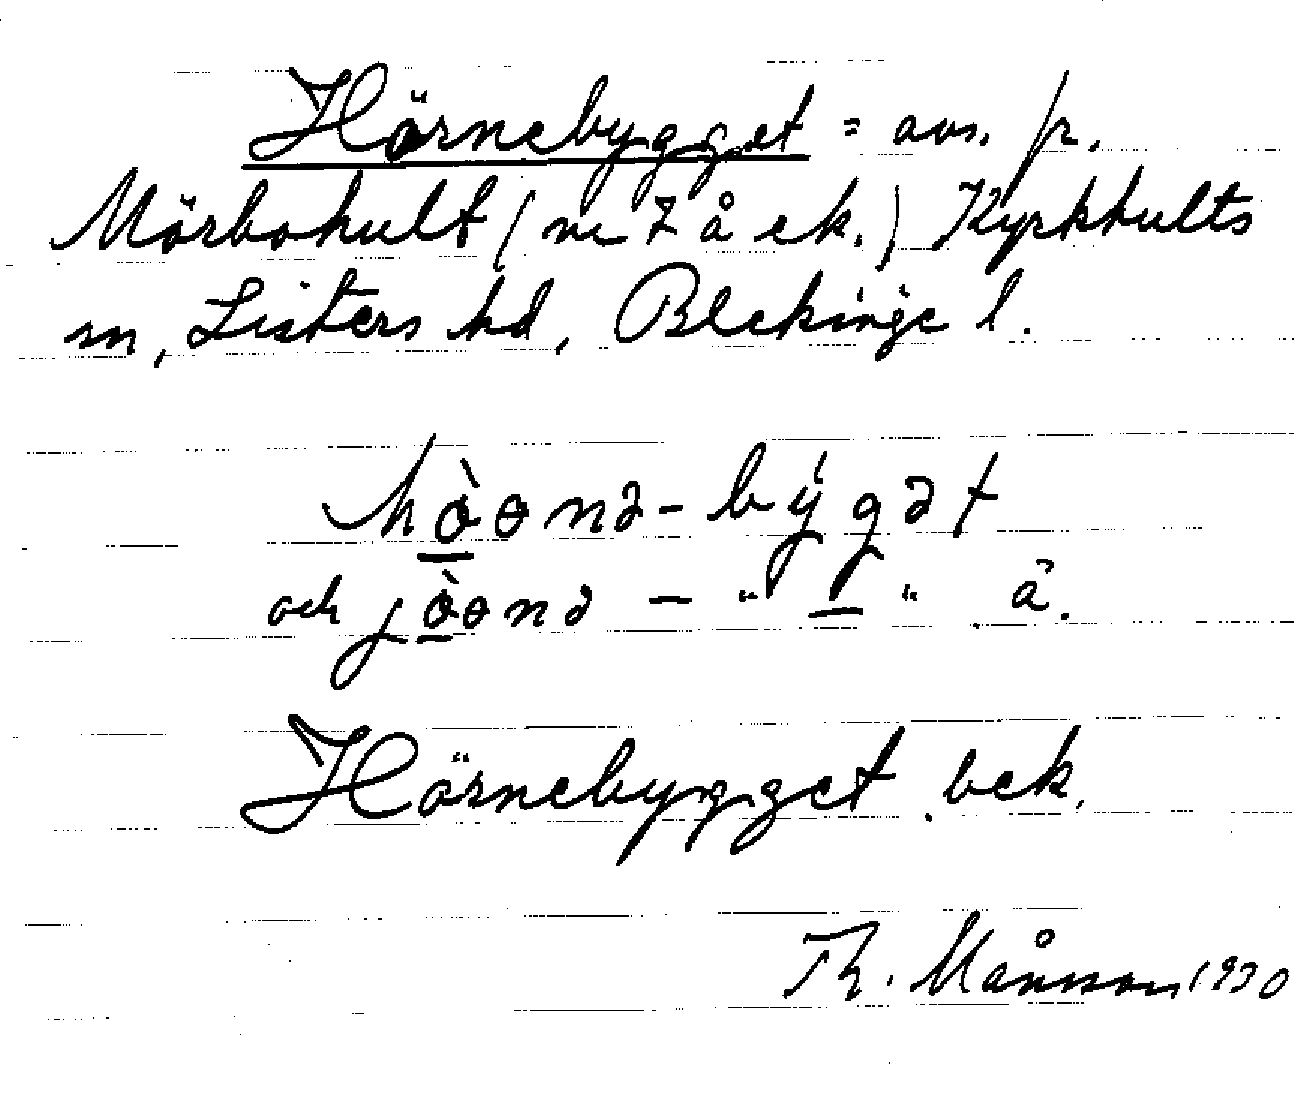 Hörnebygget = avs. fr.
Mörbokult (nr 7 å ek.) Kyrkhults
sn, Listers hd, Blekinge l.
hò̱ɵnə-býgət
och jò̱ɵnə - " - " ä.
Hörnebygget. bek.
Th. Månsson 1930